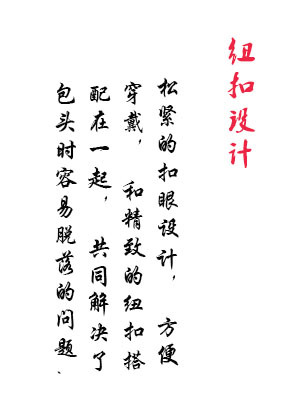 纽扣设计
松紧的扣眼设计， 方便
穿戴， 和精致的纽扣搭
配在一起， 共同解决了
包头时容易脱落的问题.